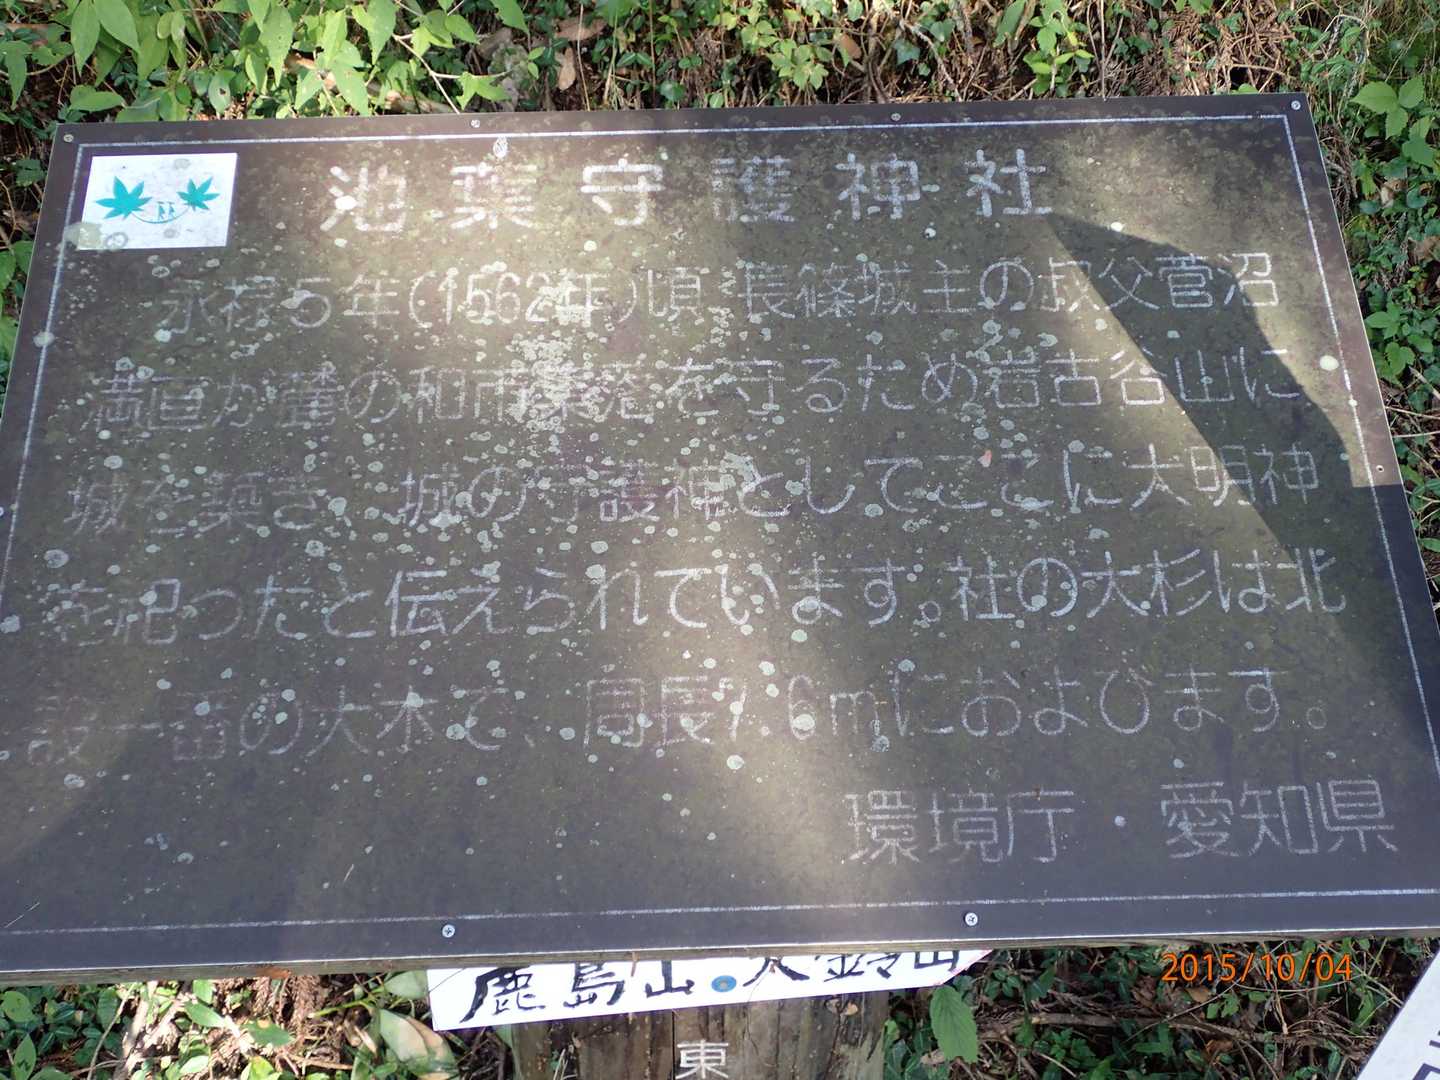 池葉守護神社
永禄5年(1562年)頃、長篠城主の叔父菅沼
満直が麓の和市集落を守るため岩古谷山に
城を築き、城の守護神としてここに大明神
を祀ったと伝えられています。社の大杉は北
設一番の大木で、周長7.6mにおよびます。
環境庁・愛知県
鹿島山・大鈴山
東
2015/10/04